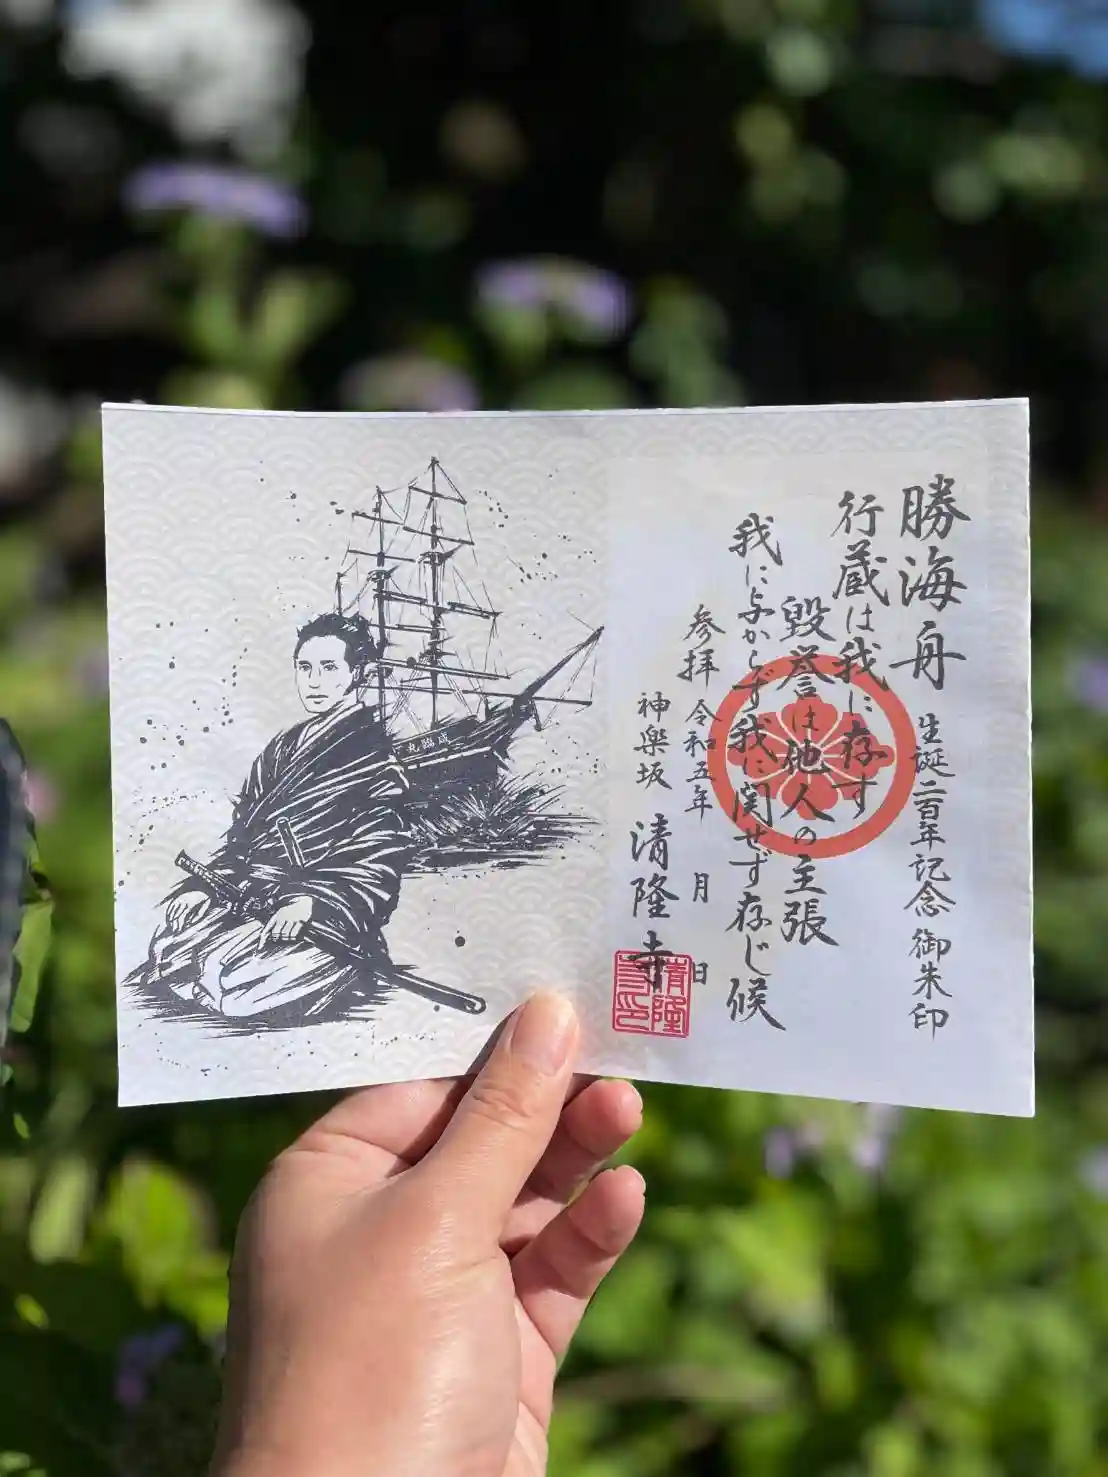 勝海舟 生誕二百年記念 御朱印
行蔵は我に存す
毀誉は他人の主張
我に与からず我に関せず存じ候
参拝 令和五年 月 日
神樂坂 清隆寺
清隆寺印
咸臨丸